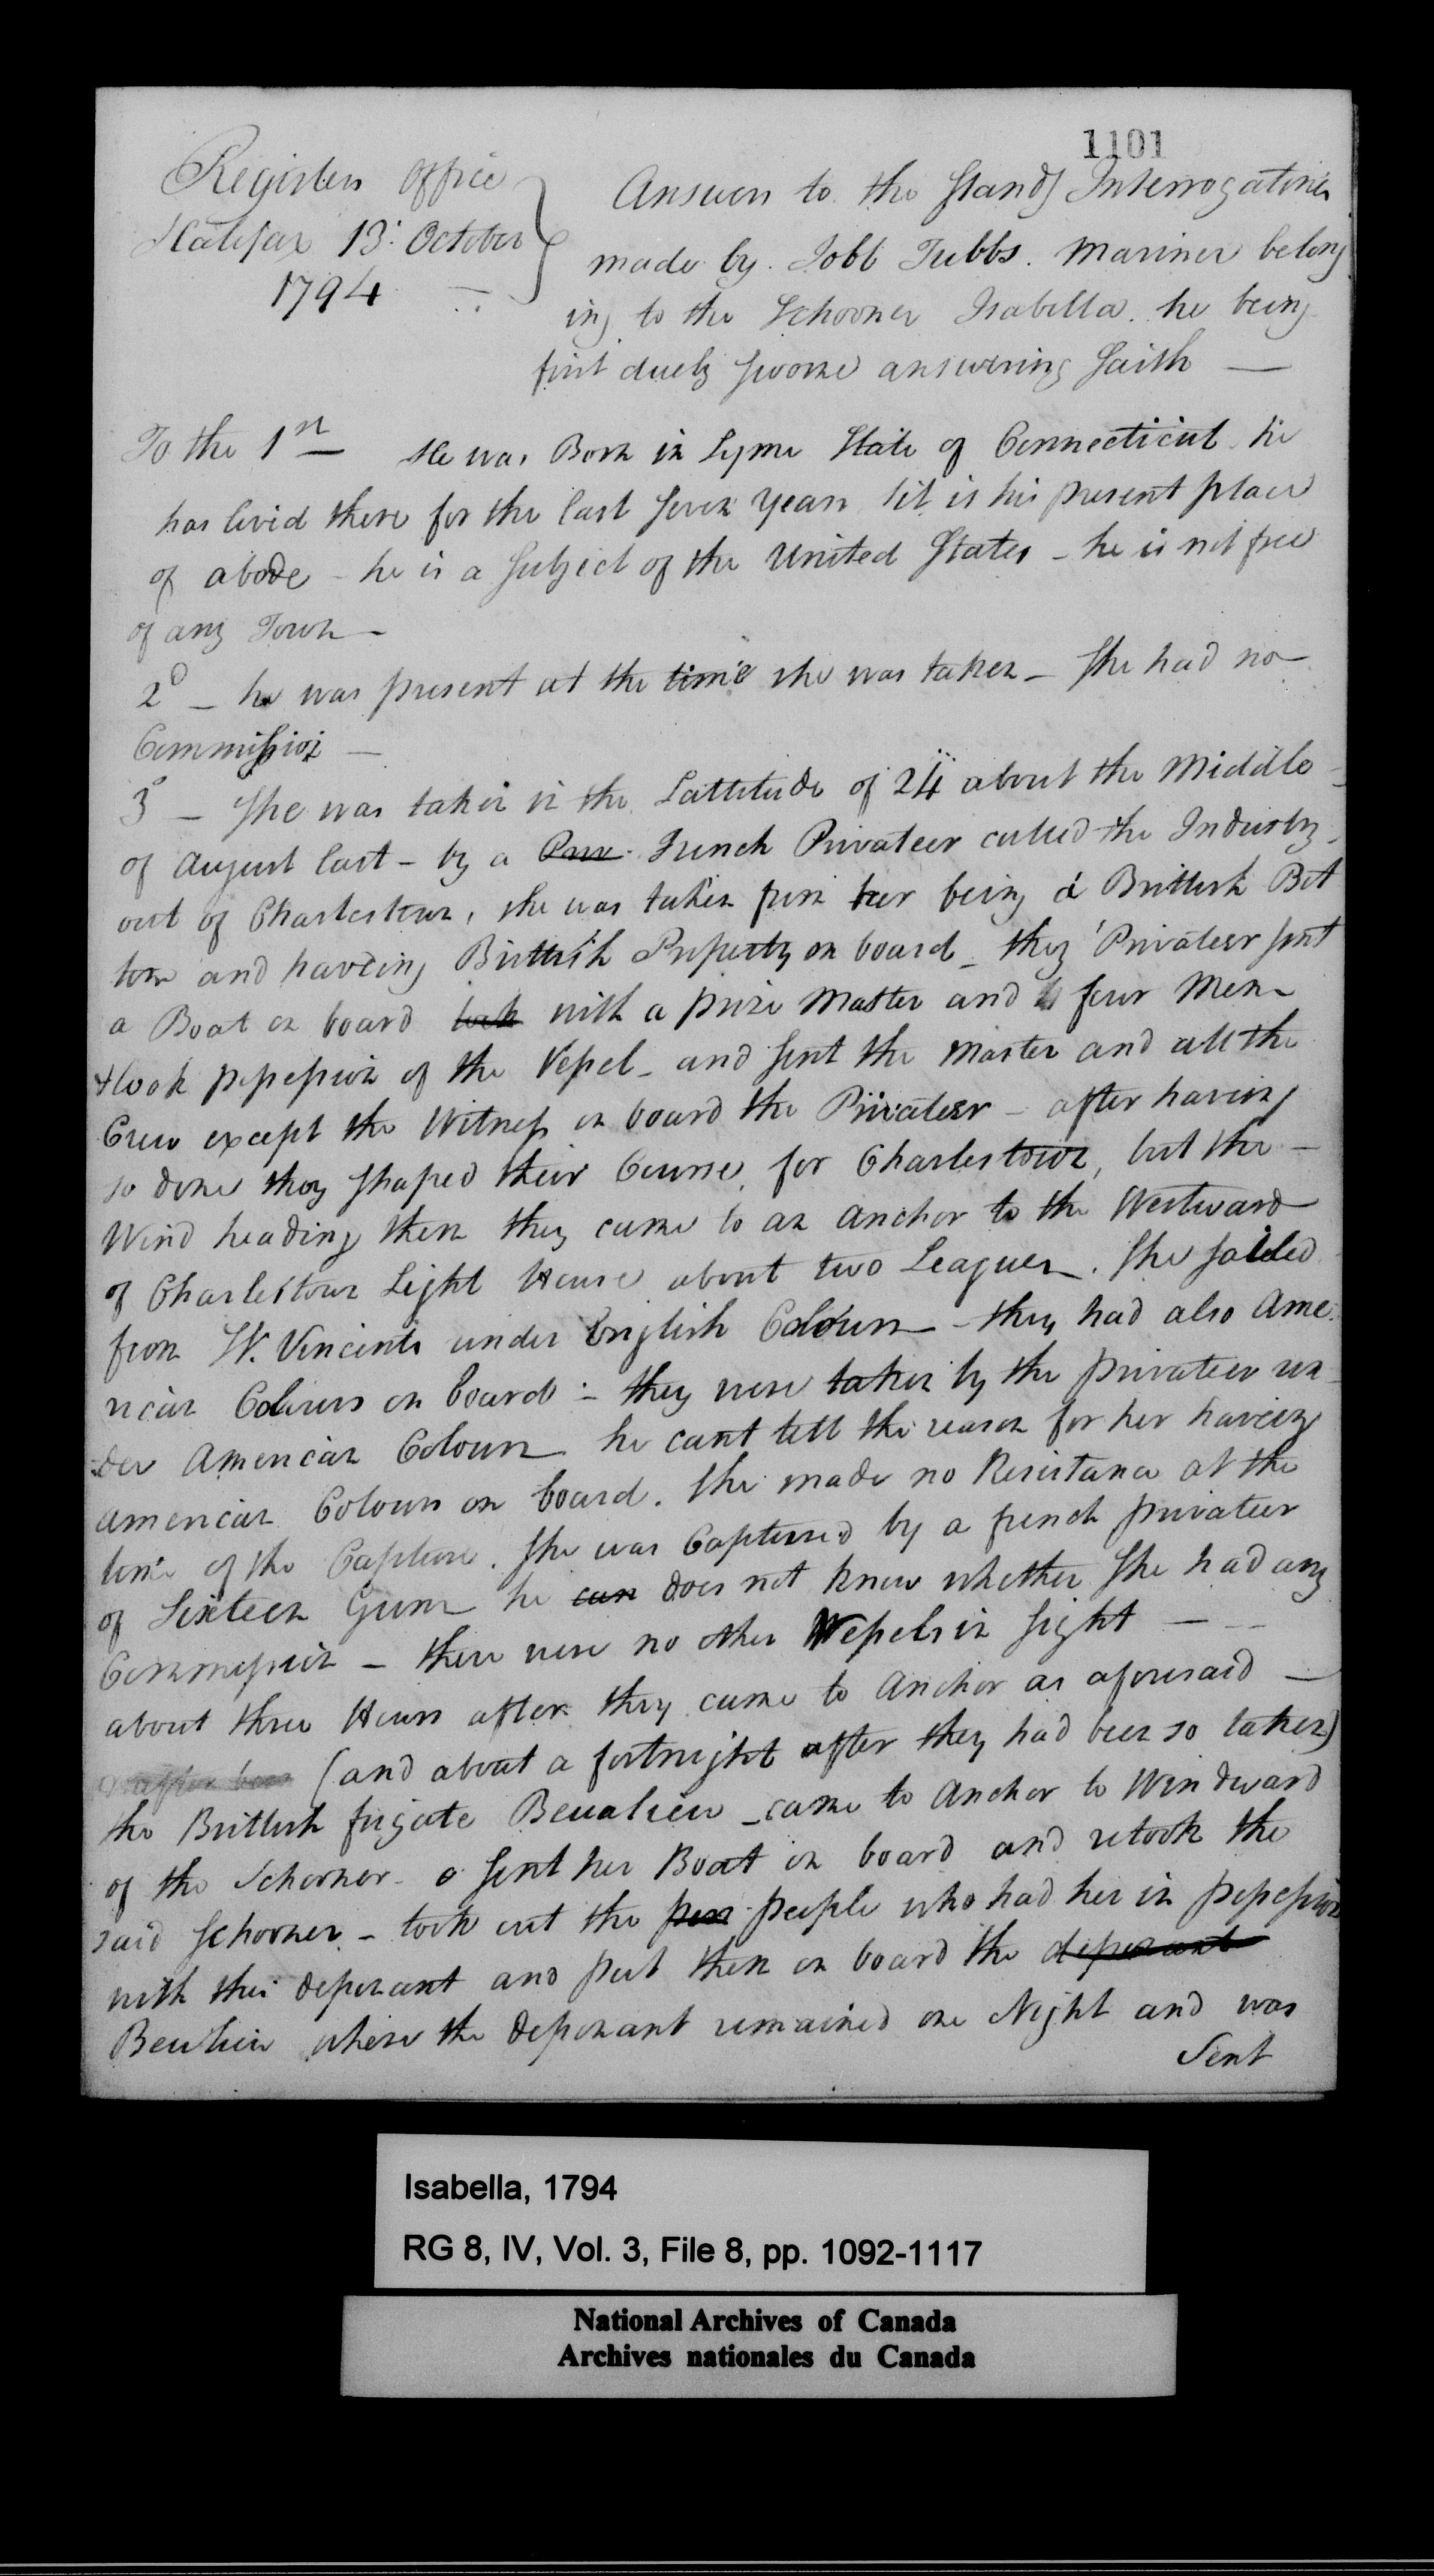 1101
Registers Office
Halifax 13: October
1794
Answers to the Stand<sup>g</sup> Interrogatories
made by Jobb Tubbs. Mariner belong
ing to the Schooner Isabella. he being
first duely sworne answering Saith —
To the 1st — He was Born in Lyme State of Connecticut he
has livid there for the last Seven Years it is his present place
of abode - he is a Subject of the United States - he is not free
of any Town -
2d - he was present at the time she was taken - She had no
Commission —
3d - She was taken in the Lattitude of 24 about the Middle
of August last - by a Priv French Privateer called the Industry
out of Charlestown, she was taken from her being a Brittish Bot
tom and having Brittish Property on board - they Privateer sent
a Boat on board took with a prize Master and 4 four Men
& took possession of the Vessel - and sent the Master and all the
Crew except the Witness on board the Privateer - after having
so done they shaped their Course for Charlestown, but the -
Wind heading them they came to an anchor to the Westward
of Charlestown Light House about two Leagues. She sailed
from St. Vincents under English Colours - they had also Ame
rican Colours on board - they were taken by the privateer un
der American Colours he cant tell the reason for her having
American Colours on board. She made no Resistance at the
time of the Capture. She was Captured by a french privateer
of Sixteen Guns he can does not know whether She had any
Commission - there were no other Vessels in Sight —
about three Hours after they came to Anchor as aforesaid —
(and about a fortnight after they had been so taken)
the Brittish frigate Beaulieu - came to Anchor to Windward
of the Schooner - & sent her Boat on board and retook the
said Schooner - took out the people who had her in possession
with this deponant and put them on board the deponant
Beulieu where the deponant remained one Night and was
Sent
Isabella, 1794
RG 8, IV, Vol. 3, File 8, pp. 1092-1117
National Archives of Canada
Archives nationales du Canada